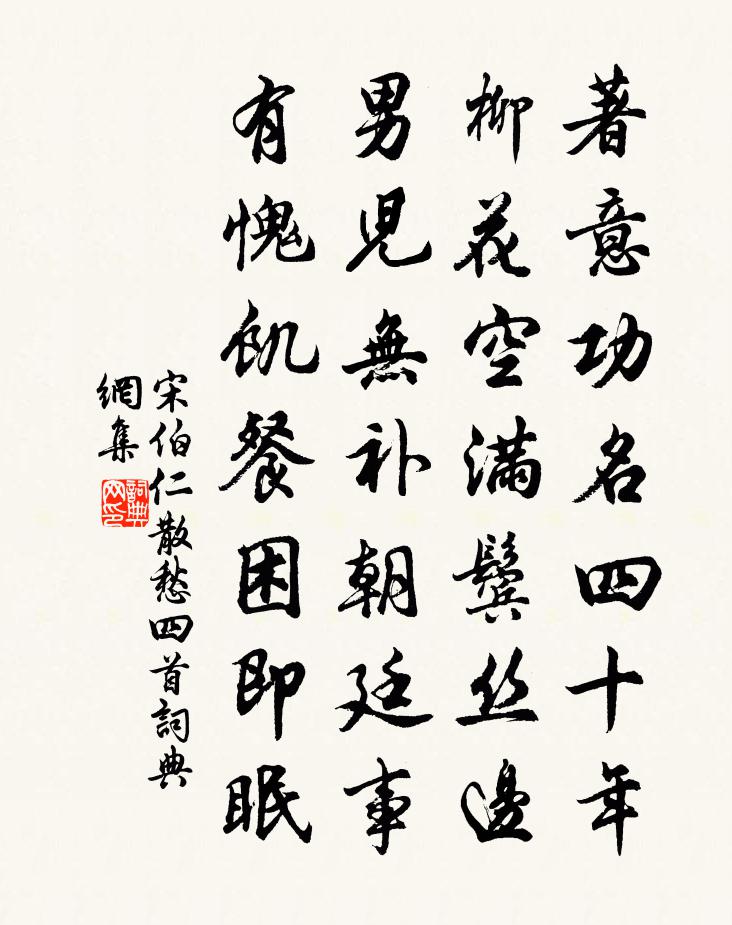 著意功名四十年
柳花空滿鬢丝邊
男兒無补朝廷事
有愧飢餐困即眠
宋伯仁散愁四首詞典
網集
詞典
网印